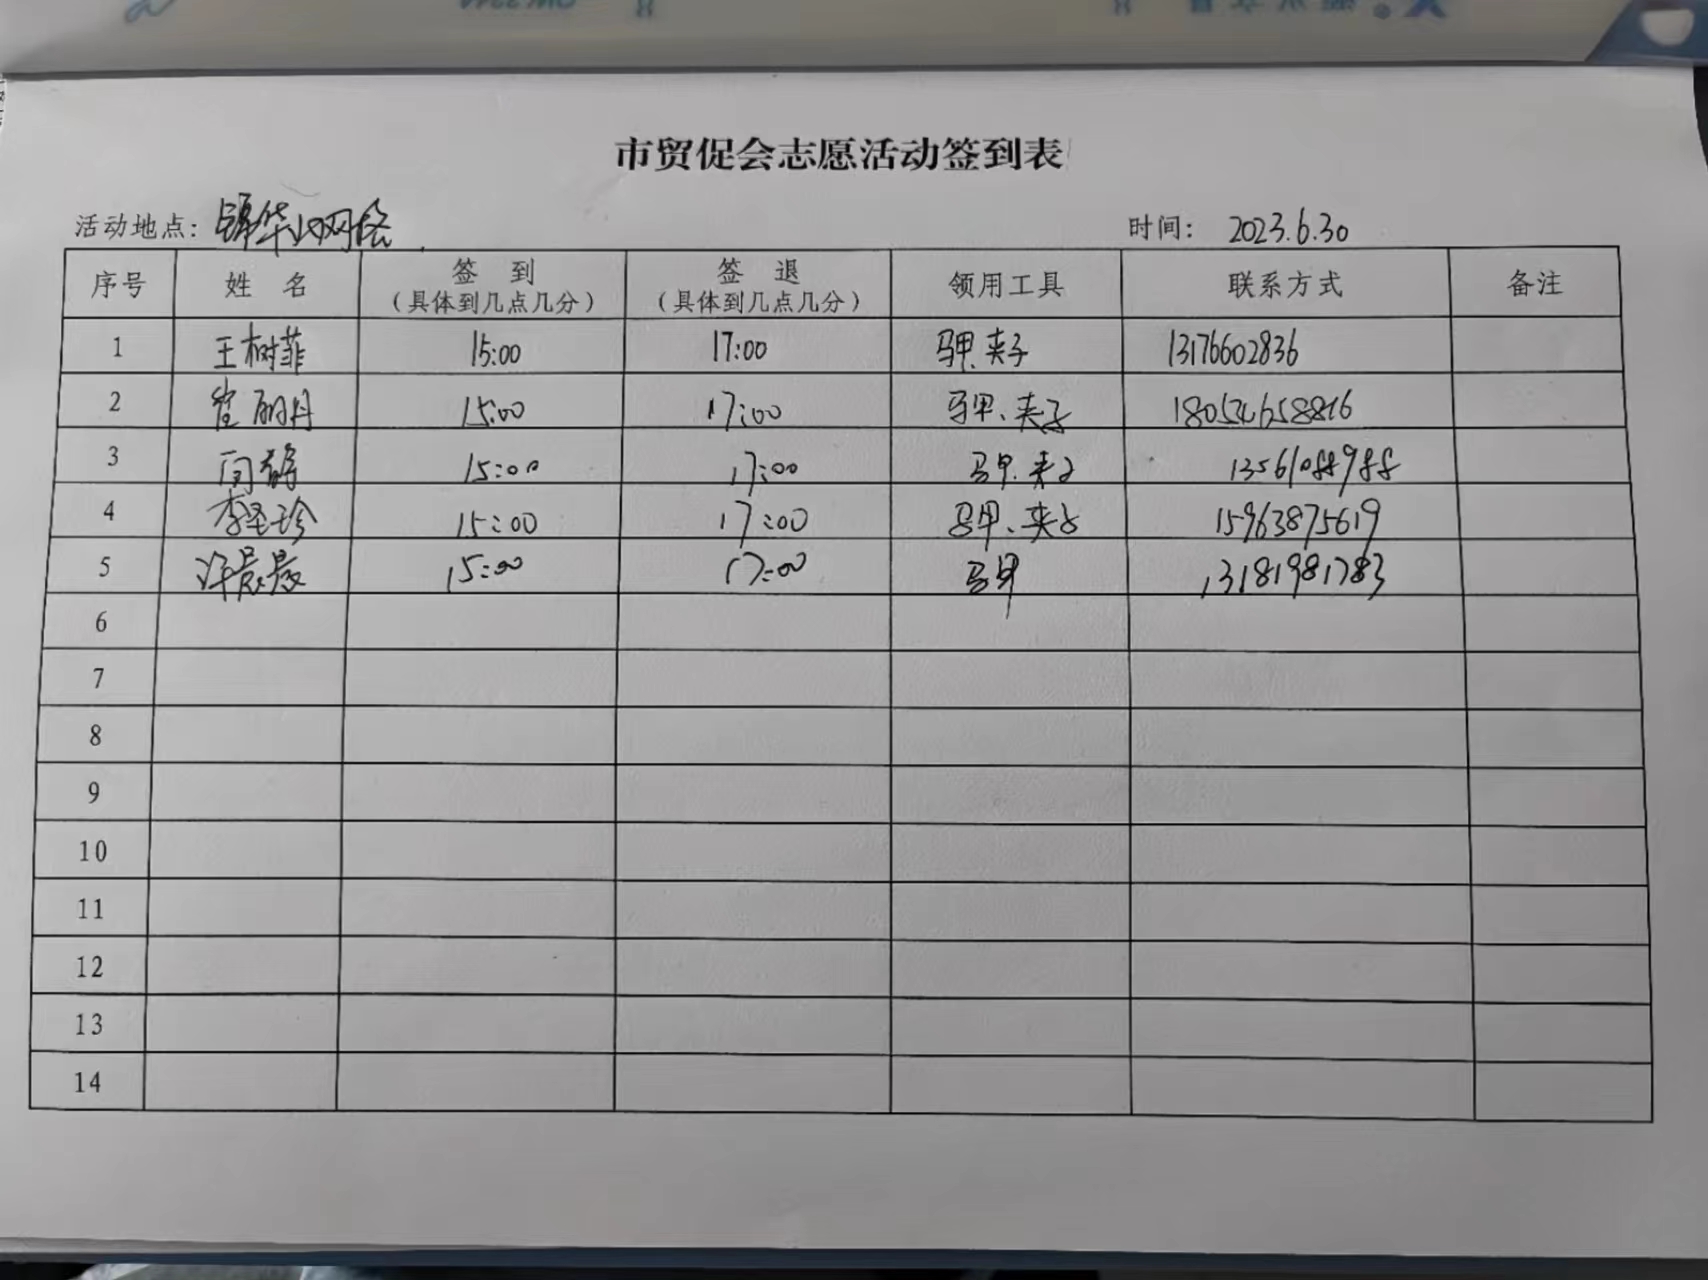 市贸促会志愿活动签到表
活动地点: 锦华四网络 时间: 2023.6.30
序号 姓 名 签 到 (具体到几点几分) 签 退 (具体到几点几分) 领用工具 联系方式 备注
1 王树菲 15:00 17:00 马甲、夹子 13176602836
2 崔丽丹 15:00 17:00 马甲、夹子 18054658816
3 15:00 17:00 马甲、夹子 13561088988
4 李圣珍 15:00 17:00 马甲、夹子 15963875619
5 许晨晨 15:00 17:00 马甲 13181981783
6
7
8
9
10
11
12
13
14